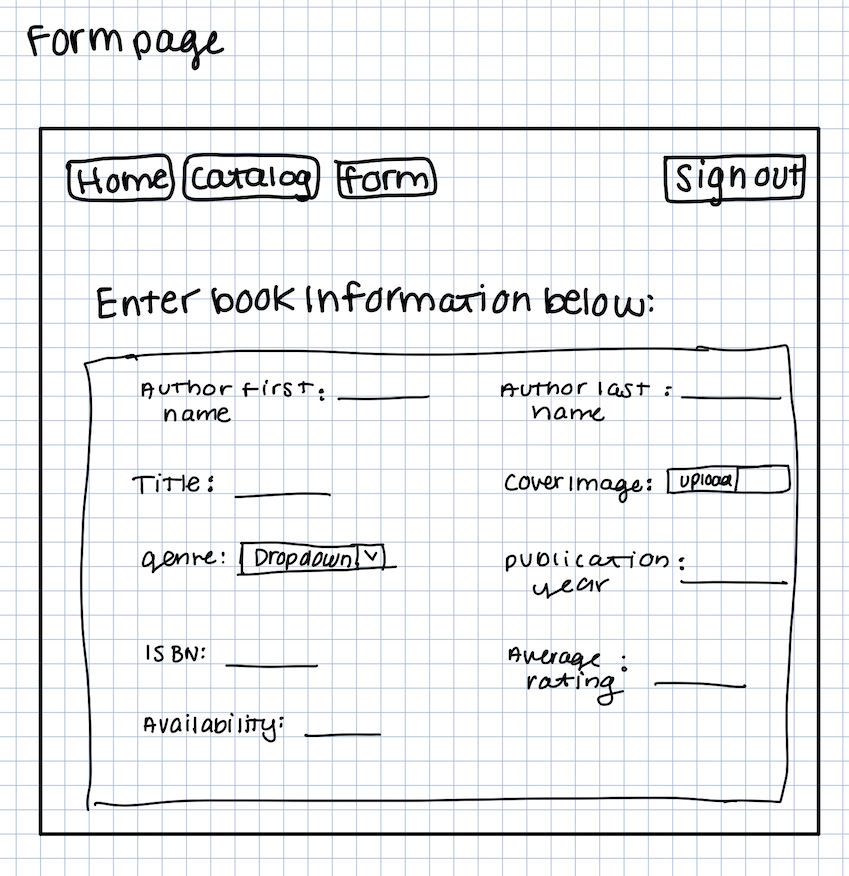 Form page
Home Catalog Form Sign out
Enter book Information below:
Author first :
name
Author last :
name
Title:
Cover Image: upload
genre: Dropdown
publication :
year
ISBN:
Average :
rating
Availability: